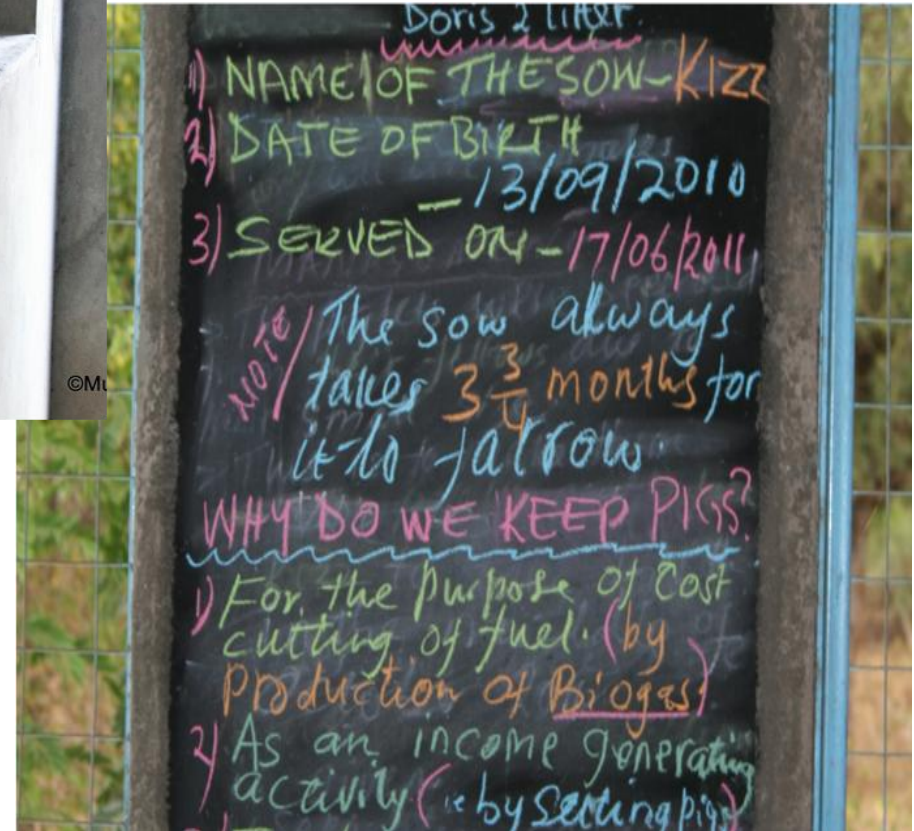 Doris 2 litter.
1) NAME OF THE SOW - KIZZ
2) DATE OF BIRTH
- 13/09/2010
3) SERVED ON - 17/06/2011
NOTE/ The sow always
takes 3 3/4 months for
it to farrow.
WHY DO WE KEEP PIGS?
1) For the purpose of cost
cutting of fuel. (by
Production of Biogas)
2) As an income generating
activity (ie by selling pigs)
©Mu